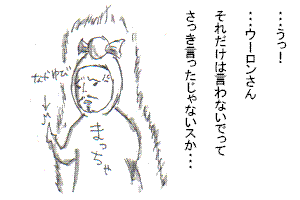 ・・・うっ！
・・・ウーロンさん
それだけは言わないでって
さっき言ったじゃないスか・・・
なかゆび
まっちゃ